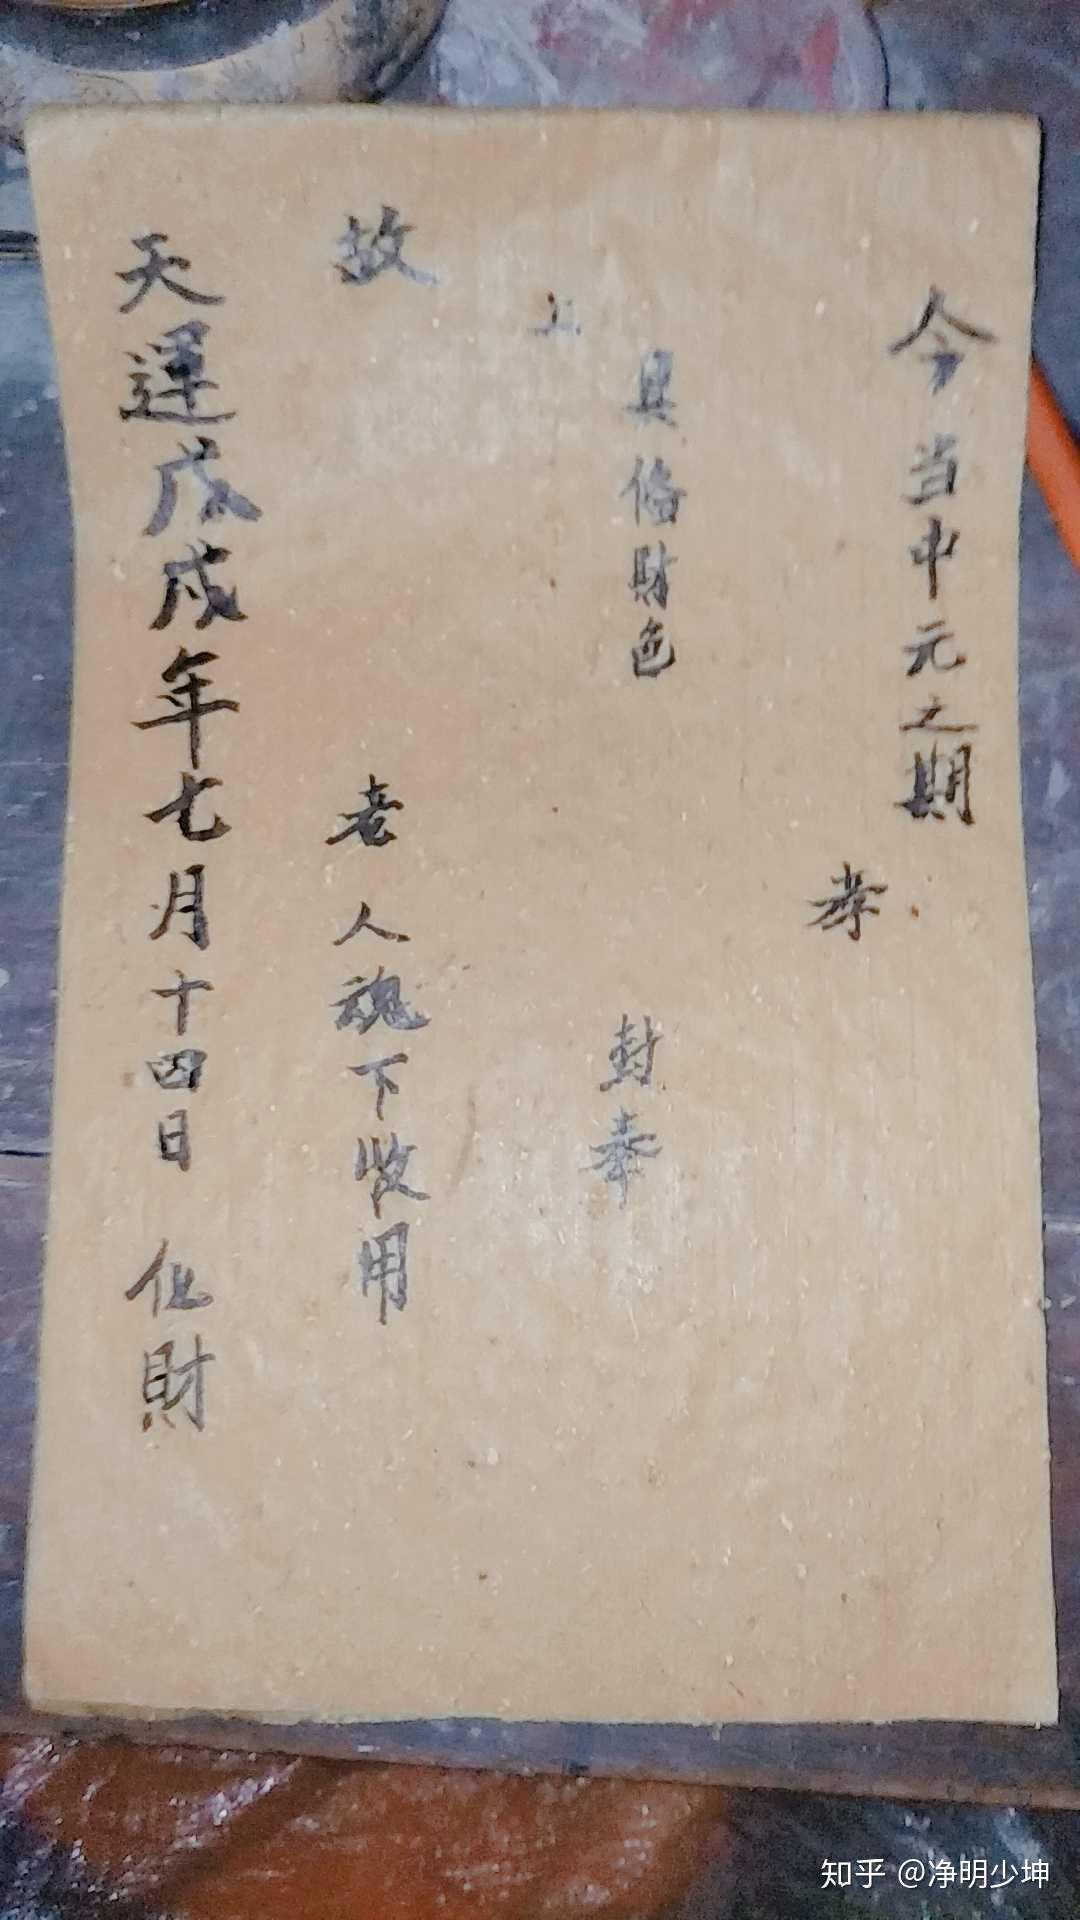 今当中元之期
孝
具俻財色 封奉
上
故 老人魂下收用
天運戊戌年七月十四日 化財
知乎 @净明少坤